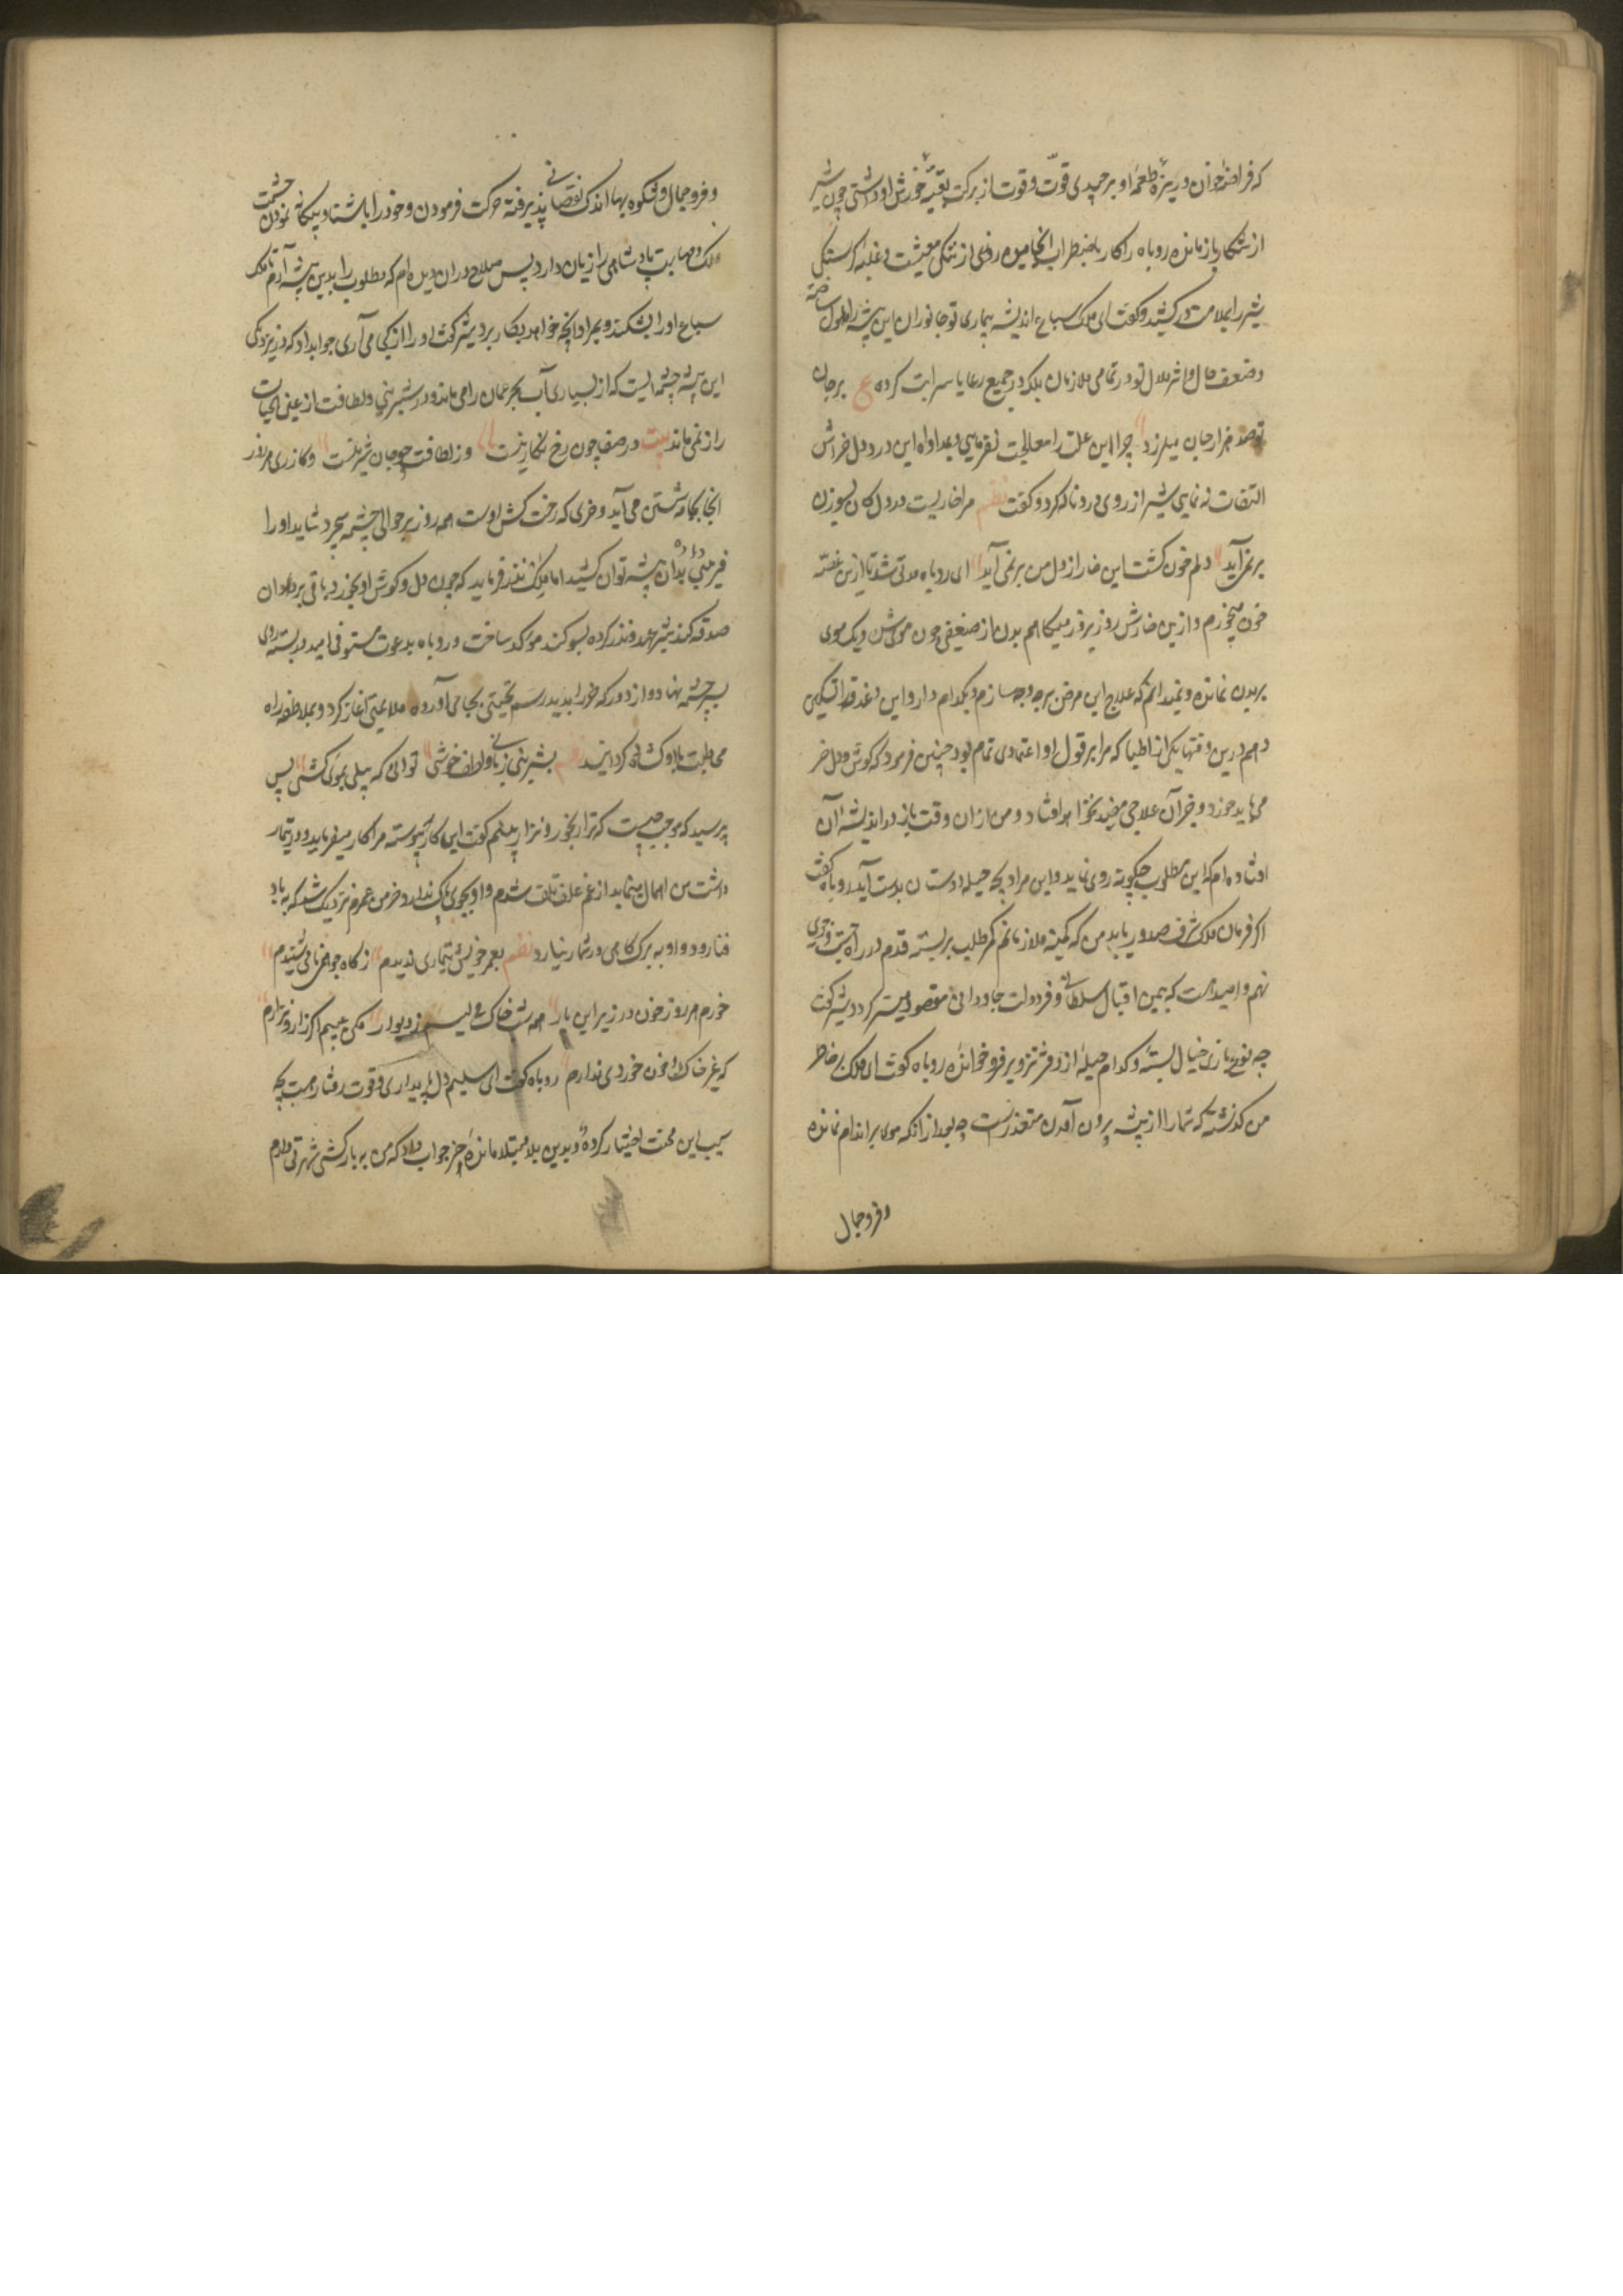 که فراضهٔ خوان و ریزهٔ طعمهٔ او برچیدی قوّت و قوت از برکت بقیّهٔ خورش او داشتی چون شیر
از شکار بازمانده روباه را کار باضطراب انجامیده روزی از تنگی معیشت و غلبهٔ گرسنگی
شیر را بملامت در کشید و گفت ای ملک سباع اندیشه بیماری تو جانوران این بیشه را ملول ساخته
و ضعف حال و اثر ملال تو در تمامی ملازمان بلکه در جمیع رعایا سرایت کرده ع بر جان
تو صد هزار جان میلرزد چرا این علت را معالجت نفرمایی و بمداواه این درد دل خراش
التفات ننمایی شیر از روی درد ناله کرد و گفت نظم مرا خاریست در دل کان بسوزن
بر نمی آید دلم خون گشت این خار از دل من بر نمی آید ای روباه مدتی شد تا ازین غصّه
خون میخورم و ازین خارش روز بروز میکاهم بدن از ضعیفی چون مویی شد و یک موی
بر بدن نمانده و نمیدانم که علاج این مرض بر چه وجه سازم و بکدام دارو این دغدغه را تسکین
دهم درین وقتها یکی از اطبا که مرا بر قول او اعتمادی تمام بود چنین فرمود که گوش و دل خر
می باید خورد و جز آن علاجی مفید نخواهد افتاد و من از آن وقت باز در اندیشه آن
افتاده ام که این مطلوب چگونه روی نماید و این مراد بچه حیله و دستان بدست آید روباه گفت
اگر فرمان ملک شرف صدور یابد من که کمینه ملازمانم کمر طلب بر بسته قدم در راه جست و جوی
نهم و امید هست که بیمن اقبال سلطانی و فر دولت جاودانی مقصود میسر گردد شیر گفت
چه نوع بازی خیال بسته و کدام حیله از دفتر تزویر فرو خوانده روباه گفت ای ملک بر خاطر
من گذشته که شما را از بیشه بیرون آمدن متعذرست چه بعد از آنکه موی بر اندام نمانده
و فر و جمال
و فر و جمال و شکوه بها اندک نقصانی پذیرفته حرکت فرمودن و خود را باشنا و بیگانه نمودن حشمت
ملک و مهابت پادشاهی را زیان دارد پس صلاح در آن دیده ام که مطلوب را بدین بیشه آرم تا ملک
سباع او را بشکند و بمراد آنچه خواهد بکار برد شیر گفت او را از کجا می آری جواب داد که در نزدیکی
این بیشه چشمه ایست که از بسیاری آب بحر عمان را می ماند و در شیرینی و لطافت از عین الحیات
راز نمی ماند بیت در صفا چون رخ نگارینست وز لطافت چو جان شیرینست و گازری هر روز
انجا بجامه شستن می آید و خری که رخت کش اوست همه روز بر حوالی چشمه میچرد شاید او را
فریبی داده بدان بیشه توان کشید اما ملک نذر فرماید که چون دل و گوش او بخورد باقی بر دگران
صدقه کند شیر عهد و نذر کرده بسوگند مؤکد ساخت و روباه بدعوت مستوفی امید در بسته روی
بسرچشمه نهاد و از دور که خر را بدید رسم تحیتی بجای آورده ملایمتی آغاز کرد و بملاطفه راه
مخاطبت با او گشاده گردانید نظم بشیرینی زبانی و لطف و خوشی توانی که پیلی بمویی کشی پس
پرسید که موجب چیست که ترا رنجور و نزار می بینم گفت این گازر پیوسته مرا کار میفرماید و در تیمار
داشت من اهمال مینماید از غم علف تلف شدم و او بجوی باک ندارد و خرمن عمرم نزدیک شد که به باد
فنا رود و او به برگ کاهی در شمار نیارد نظم بعمر خویش تیماری ندیدم ز کاه و جو جز نامی شنیدم
خورم هر روز خون در زیر این بار همه شب خاک می لیسم ز دیوار مکن عیبم اگر زار و نزارم
که غیر خاک و خون خوردی ندارم روباه گفت ای سلیم دل پای داری و قوت رفتار هست بچه
سبب این محنت اختیار کرده و بدین بلا مبتلا مانده خر جواب داد که من به بارکشی شهرتی دارم